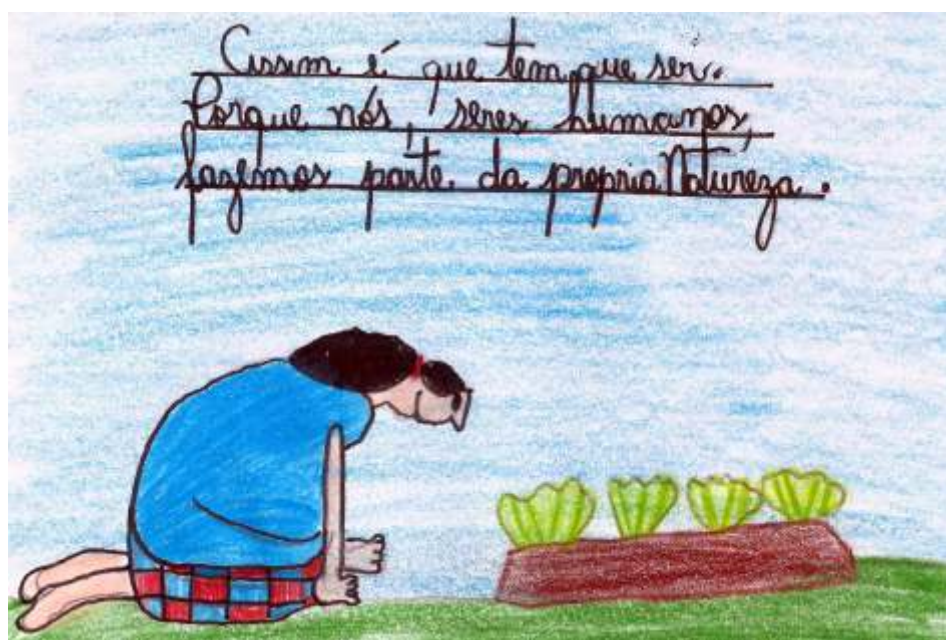 Assim é que tem que ser.
Porque nós, seres humanos,
fazemos parte da propria Natureza.